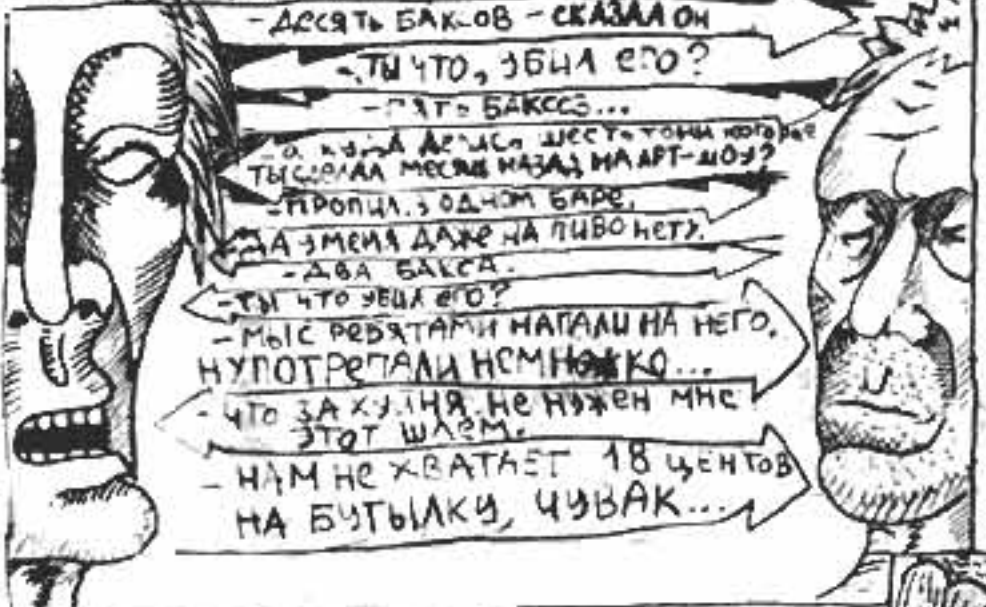 - ДЕСЯТЬ БАКСОВ - СКАЗАЛ ОН
- ТЫ ЧТО, УБИЛ ЕГО?
- ПЯТЬ БАКСОВ...
- А КУДА ДЕЛИСЬ ШЕСТЬ ТОНН КОТОРЫЕ
ТЫ СДЕЛАЛ МЕСЯЦ НАЗАД НА АРТ-ШОУ?
- ПРОПИЛ, В ОДНОМ БАРЕ.
ДА У МЕНЯ ДАЖЕ НА ПИВО НЕТУ.
- ДВА БАКСА.
- ТЫ ЧТО УБИЛ ЕГО?
- МЫ С РЕБЯТАМИ НАПАЛИ НА НЕГО,
НУ ПОТРЕПАЛИ НЕМНОЖКО...
- ЧТО ЗА ХУЙНЯ, НЕ НУЖЕН МНЕ
ЭТОТ ШЛЕМ.
- НАМ НЕ ХВАТАЕТ 18 ЦЕНТОВ
НА БУТЫЛКУ, ЧУВАК...